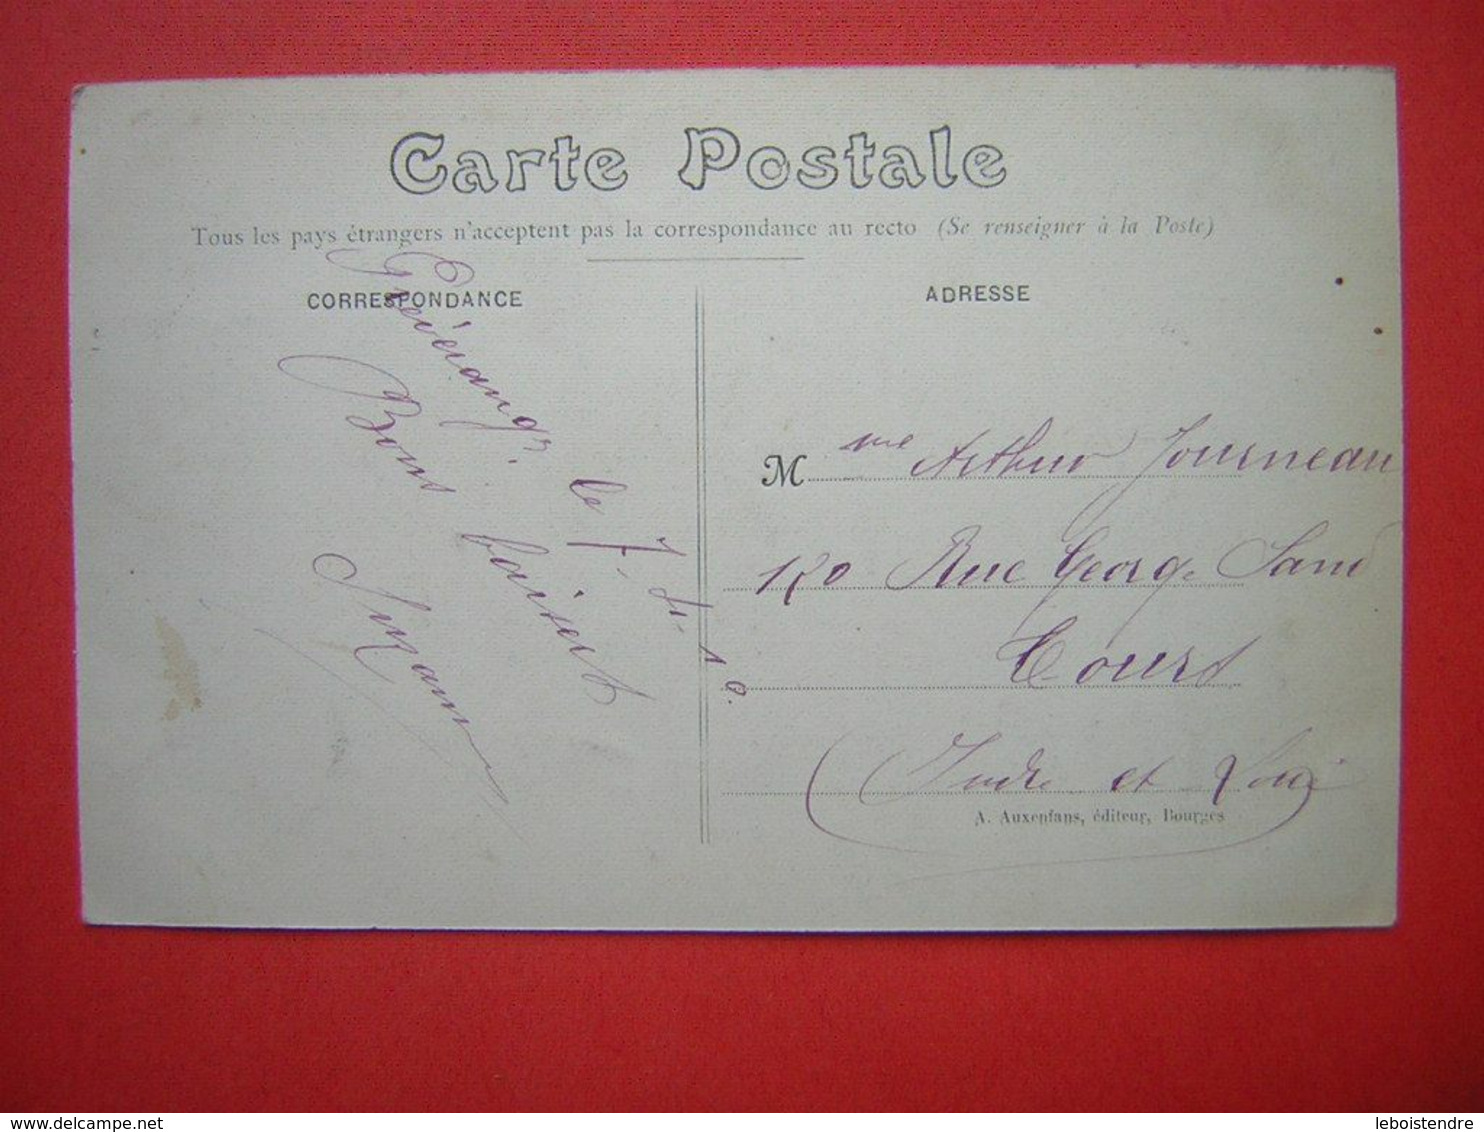 Carte Postale
Tous les pays étrangers n'acceptent pas la correspondance au recto (Se renseigner à la Poste)
CORRESPONDANCE
le 7-4-10.
Bons baisers
Suzanne
ADRESSE
Mme Arthur Journeau
120 Rue George Sand
Tours
(Indre et Loire)
A. Auxenfans, éditeur, Bourges
leboistendre